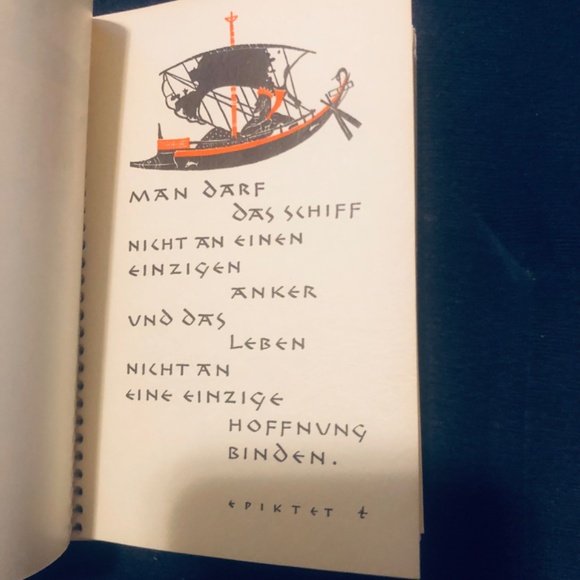 MAN DARF
DAS SCHIFF
NICHT AN EINEN
EINZIGEN
ANKER
UND DAS
LEBEN
NICHT AN
EINE EINZIGE
HOFFNUNG
BINDEN.
EPIKTET